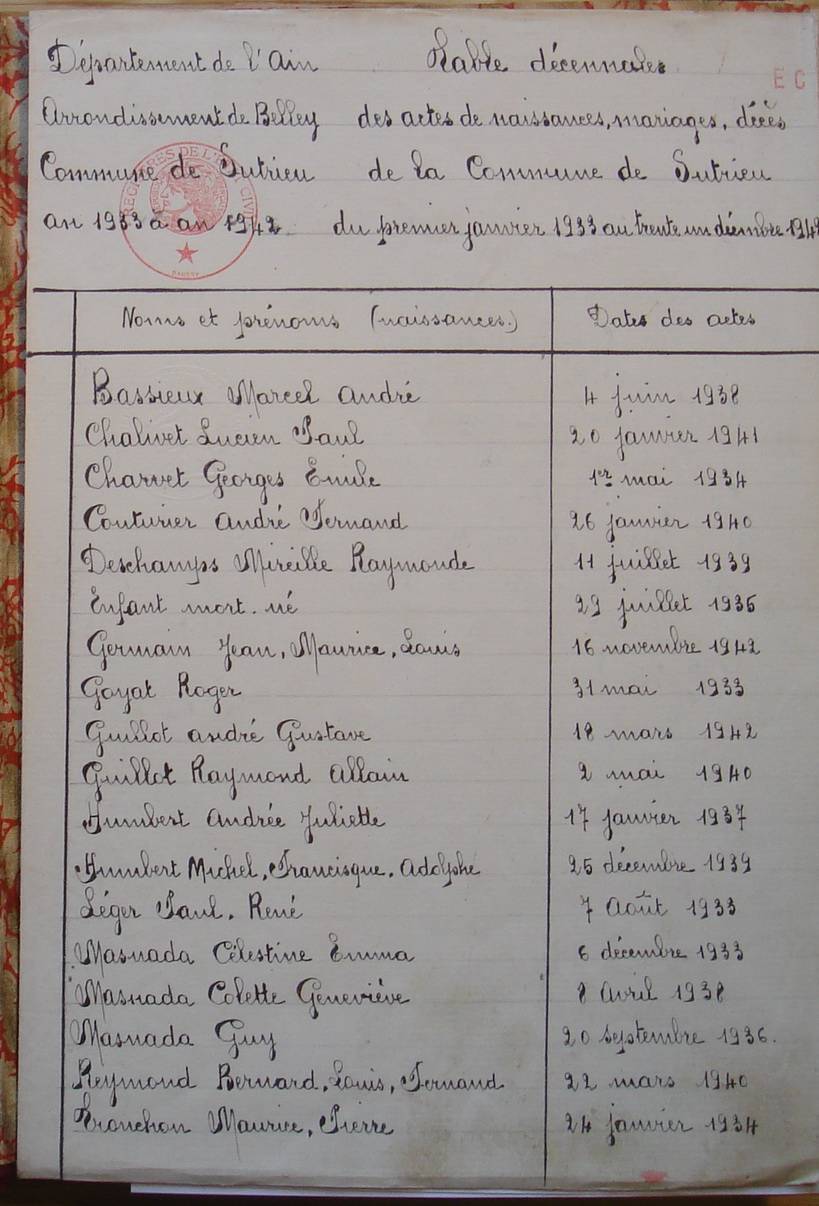 Département de l'Ain Table décennales
E C
Arrondissement de Belley des actes de naissances, mariages, décès
Commune de Sutrieu de la Commune de Sutrieu
an 1933 à an 1942 du premier janvier 1933 au trente un décembre 1942
Noms et prénoms (naissances.) Dates des actes
Bassieux Marcel André 4 juin 1938
Chalivet Lucien Paul 20 janvier 1941
Charvet Georges Emile 1er mai 1934
Couturier André Fernand 26 janvier 1940
Deschamps Mireille Raymonde 11 juillet 1939
Enfant mort. né 29 juillet 1936
Germain Jean, Maurice, Louis 16 novembre 1942
Goyat Roger 31 mai 1933
Guillot André Gustave 18 mars 1942
Guillot Raymond Allain 2 mai 1940
Humbert Andrée Juliette 17 janvier 1937
Humbert Michel, Francisque, Adolphe 25 décembre 1939
Léger Paul, René 7 Août 1933
Masnada Célestine Emma 6 décembre 1933
Masnada Colette Geneviève 8 Avril 1938
Masnada Guy 20 septembre 1936.
Reymond Bernard, Louis, Fernand 22 mars 1940
Tronchon Maurice, Pierre 24 janvier 1934